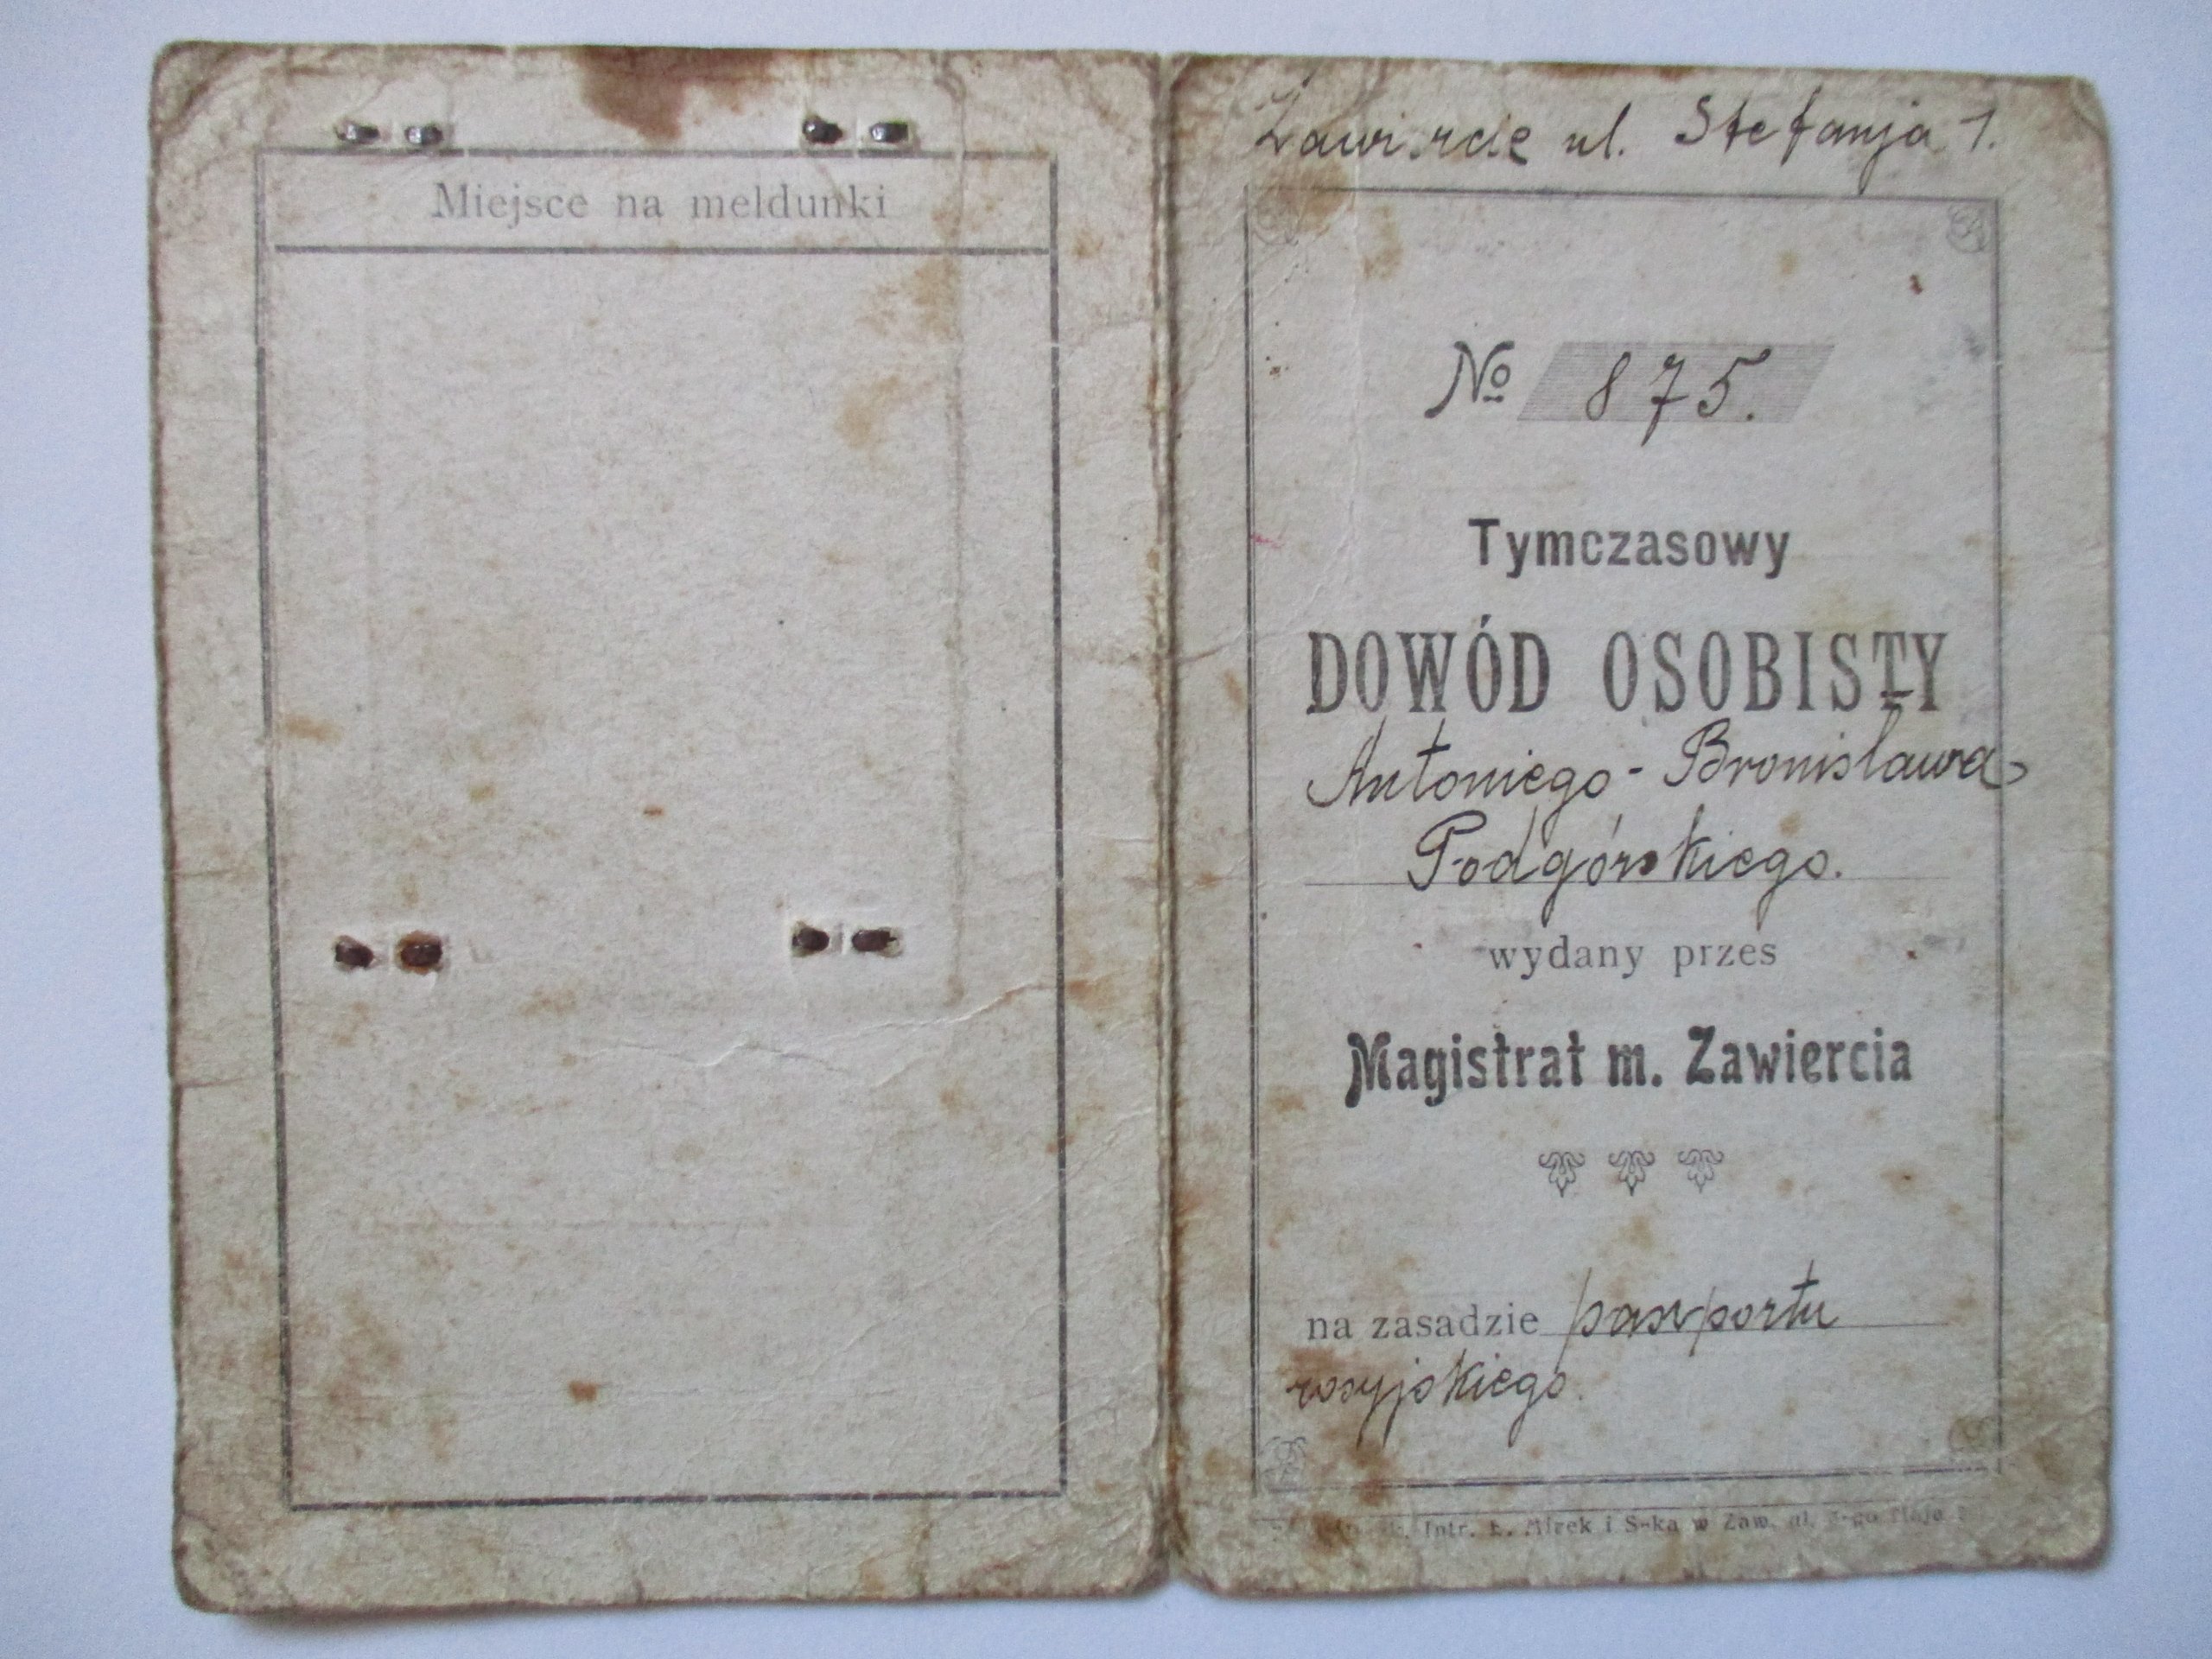 Miejsce na meldunki
Zawiercie ul. Stefanja 1.
No 875.
Tymczasowy
DOWÓD OSOBISTY
Antoniego - Bronisława
Podgórskiego.
wydany przes
Magistrat m. Zawiercia
na zasadzie paszportu
rosyjskiego.
Intr. E. Mirek i S-ka w Zaw. ul. 3-go Maja